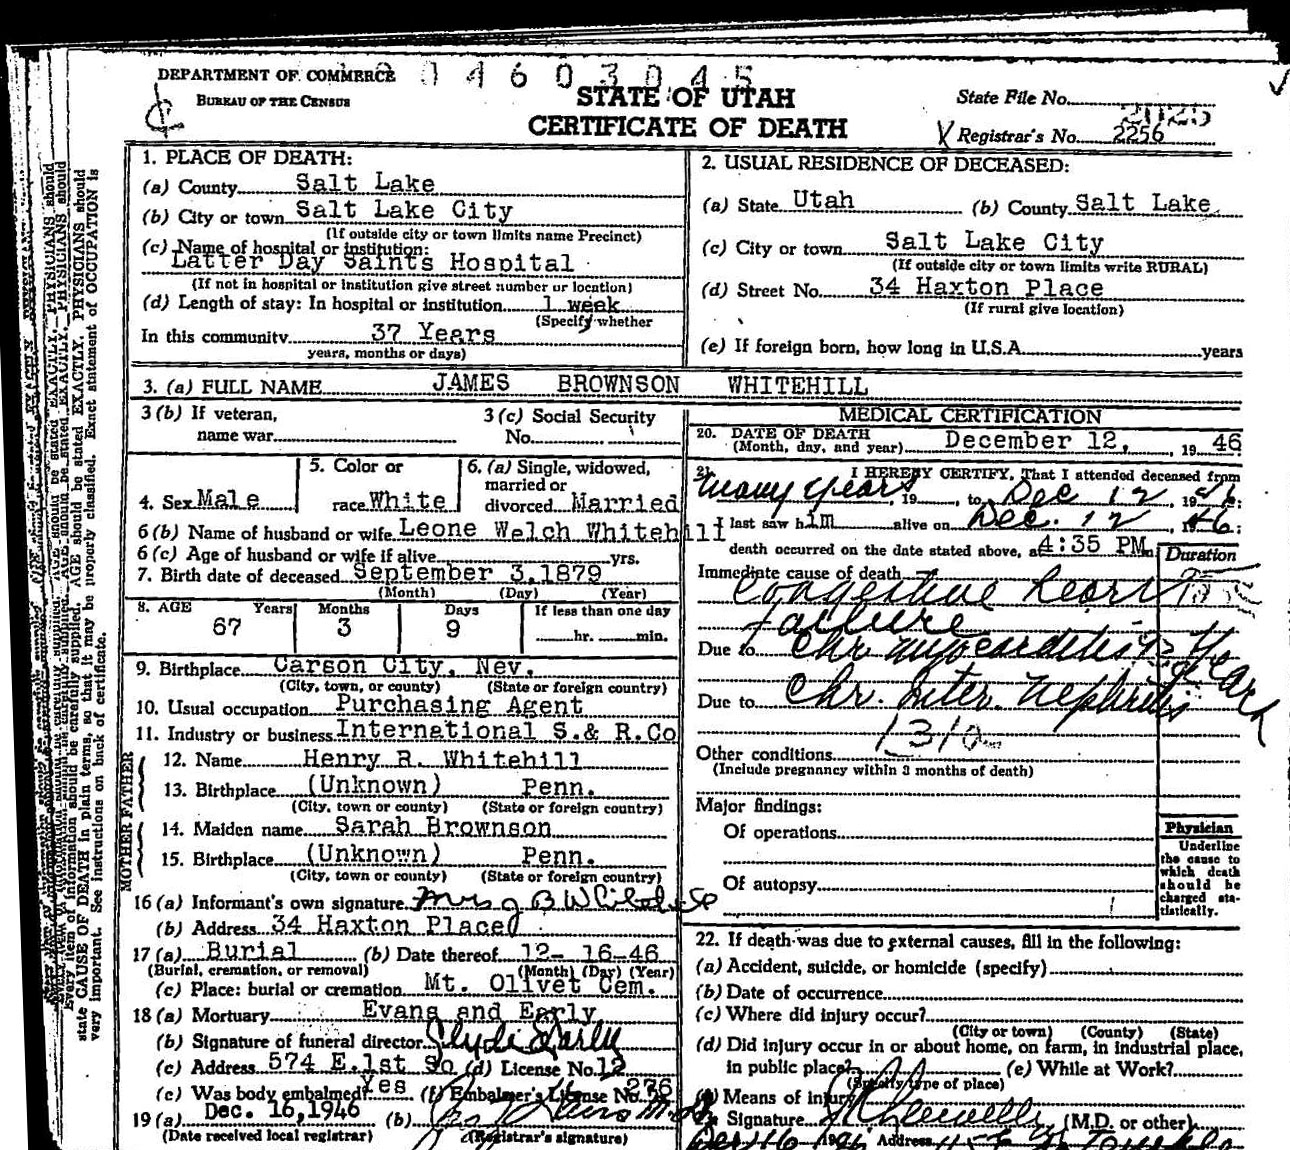 DEPARTMENT OF COMMERCE
BUREAU OF THE CENSUS
4 6 0 3 0 4 5
STATE OF UTAH
CERTIFICATE OF DEATH
State File No. 2025
Registrar's No. 2256
1. PLACE OF DEATH:
(a) County Salt Lake
(b) City or town Salt Lake City
(If outside city or town limits name Precinct)
(c) Name of hospital or institution:
Latter Day Saints Hospital
(If not in hospital or institution give street number or location)
(d) Length of stay: In hospital or institution 1 week
(Specify whether
In this community 37 Years
years, months or days)
2. USUAL RESIDENCE OF DECEASED:
(a) State Utah (b) County Salt Lake
(c) City or town Salt Lake City
(If outside city or town limits write RURAL)
(d) Street No. 34 Haxton Place
(If rural give location)
(e) If foreign born, how long in U.S.A. years
3. (a) FULL NAME JAMES BROWNSON WHITEHILL
3 (b) If veteran,
name war
3 (c) Social Security
No.
4. Sex Male
5. Color or
race White
6. (a) Single, widowed,
married or
divorced Married
6 (b) Name of husband or wife Leone Welch Whitehill
6 (c) Age of husband or wife if alive yrs.
7. Birth date of deceased September 3, 1879
(Month) (Day) (Year)
8. AGE Years Months Days If less than one day
67 3 9 hr. min.
9. Birthplace Carson City, Nev.
(City, town, or county) (State or foreign country)
10. Usual occupation Purchasing Agent
11. Industry or business International S.& R.Co
FATHER
12. Name Henry R. Whitehill
13. Birthplace (Unknown) Penn.
(City, town or county) (State or foreign country)
MOTHER
14. Maiden name Sarah Brownson
15. Birthplace (Unknown) Penn.
(City, town or county) (State or foreign country)
16 (a) Informant's own signature Mrs J B Whitehill
(b) Address 34 Haxton Place
17 (a) Burial (b) Date thereof 12- 16-46
(Burial, cremation, or removal) (Month) (Day) (Year)
(c) Place: burial or cremation Mt. Olivet Cem.
18 (a) Mortuary Evans and Early
(b) Signature of funeral director Clyde Early
(c) Address 574 E.1st So (d) License No. 12
(e) Was body embalmed? Yes (f) Embalmer's License No. 276
19 (a) Dec. 16,1946 (b)
(Date received local registrar) (Registrar's signature)
MEDICAL CERTIFICATION
20. DATE OF DEATH
(Month, day, and year) December 12, 19 46
21. I HEREBY CERTIFY, That I attended deceased from
Many years 19 , to Dec 12 19 46;
I last saw him alive on Dec. 12 , 46;
death occurred on the date stated above, at 4:35 PM
Duration
Immediate cause of death
Congestive heart
failure
Due to Chr myocarditis
Due to Chr. Inter. Nephritis
131a
Other conditions
(Include pregnancy within 3 months of death)
Major findings:
Of operations
Of autopsy
Physician
Underline
the cause to
which death
should be
charged sta-
tistically.
22. If death was due to external causes, fill in the following:
(a) Accident, suicide, or homicide (specify)
(b) Date of occurrence
(c) Where did injury occur?
(City or town) (County) (State)
(d) Did injury occur in or about home, on farm, in industrial place,
in public place? (e) While at Work?
(Specify type of place)
Means of injury
Signature (M.D. or other)
Address
AGE should be stated EXACTLY. PHYSICIANS should
state CAUSE OF DEATH in plain terms, so that it may be properly classified. Exact statement of OCCUPATION is
very important. See instructions on back of certificate.